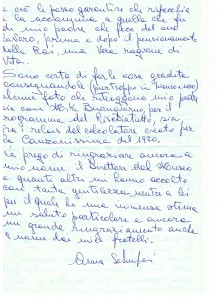 e ciò le posso garantire che rispecchia
e la accomuna a quella che fu
di mio padre che fece del suo
lavoro, prima e dopo il pensionamento
nella Rai, una vera ragione di
vita.
Sono certa di farle cosa gradita
consegnandole (purtroppo in bianco e nero)
alcune foto che ritraggono mio padre
sia con Mike Buongiorno, per il
programma del Rischiatutto, sia
fra i relais del calcolatore creato per
la Canzonissima del 1970.
La prego di ringraziare ancora a
mio nome il Direttore del Museo
e quanti altri mi hanno accolto
con tanta gentilezza, mentre a lei
per il quale ho una immensa stima
un saluto particolare e ancora
un grande ringraziamento anche
a nome dei miei fratelli.
Anna